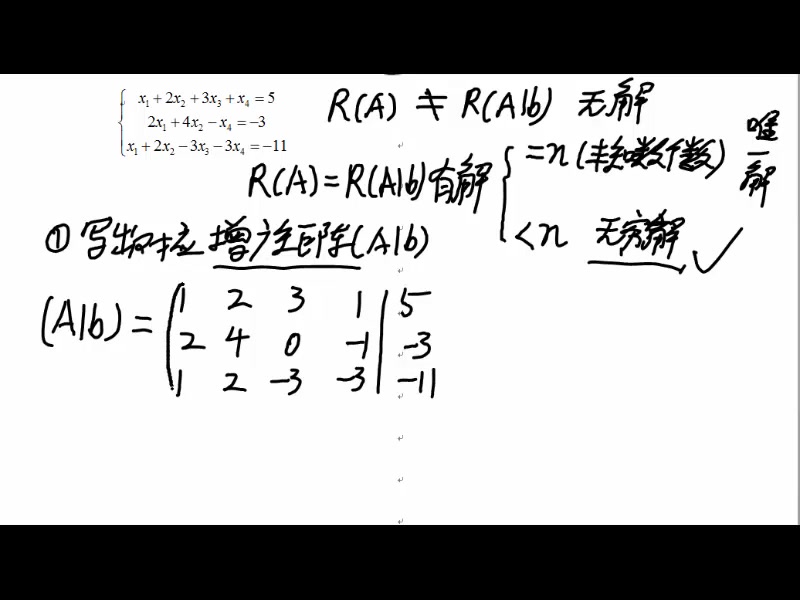 x₁+2x₂+3x₃+x₄=5
2x₁+4x₂-x₄=-3
x₁+2x₂-3x₃-3x₄=-11
R(A) ≠ R(A|b) 无解
R(A)=R(A|b)有解
=n(未知数个数)
唯一解
<n 无穷解 ✓
①写出对应增广矩阵(A|b)
(A|b)=
1 2 3 1 | 5
2 4 0 -1 | -3
1 2 -3 -3 | -11